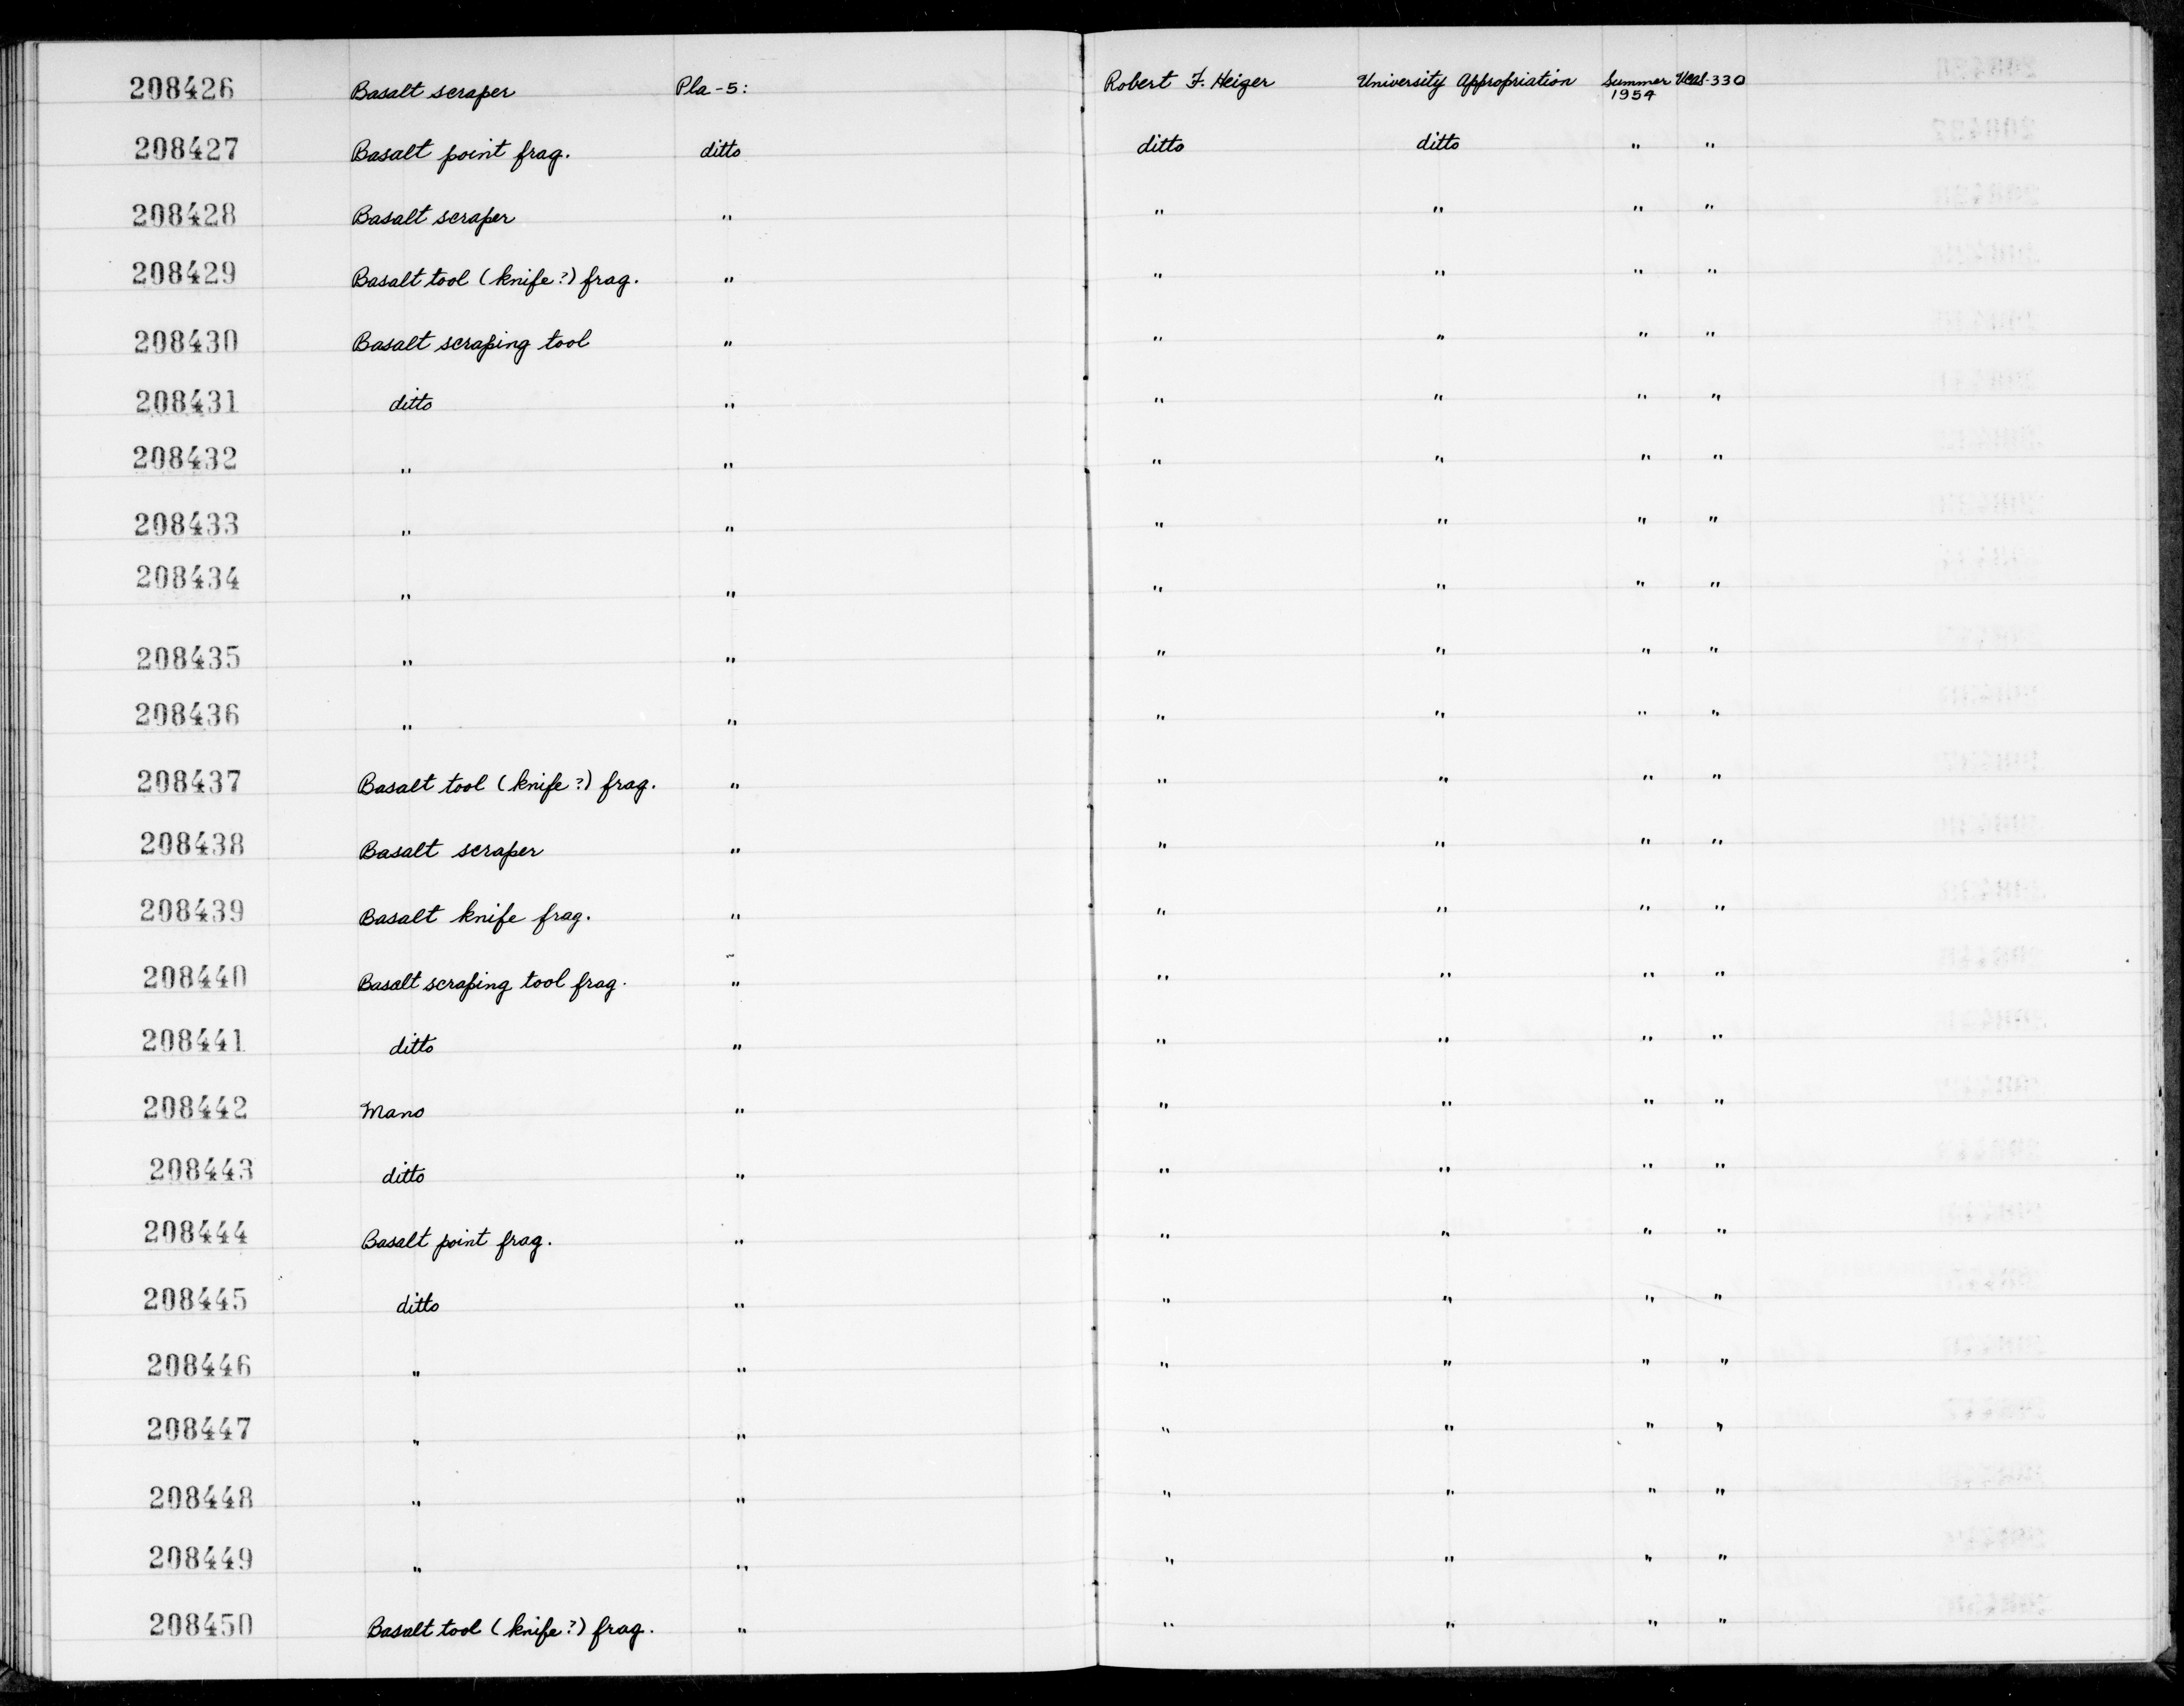 208426 Basalt scraper Pla-5: Robert F. Heizer University Appropriation Summer 1954 UCAS-330
208427 Basalt point frag. ditto ditto ditto " "
208428 Basalt scraper " " " " "
208429 Basalt tool (knife?) frag. " " " " "
208430 Basalt scraping tool " " " " "
208431 ditto " " " " "
208432 " " " " " "
208433 " " " " " "
208434 " " " " " "
208435 " " " " " "
208436 " " " " " "
208437 Basalt tool (knife?) frag. " " " " "
208438 Basalt scraper " " " " "
208439 Basalt knife frag. " " " " "
208440 Basalt scraping tool frag. " " " " "
208441 ditto " " " " "
208442 Mano " " " " "
208443 ditto " " " " "
208444 Basalt point frag. " " " " "
208445 ditto " " " " "
208446 " " " " " "
208447 " " " " " "
208448 " " " " " "
208449 " " " " " "
208450 Basalt tool (knife?) frag. " " " " "